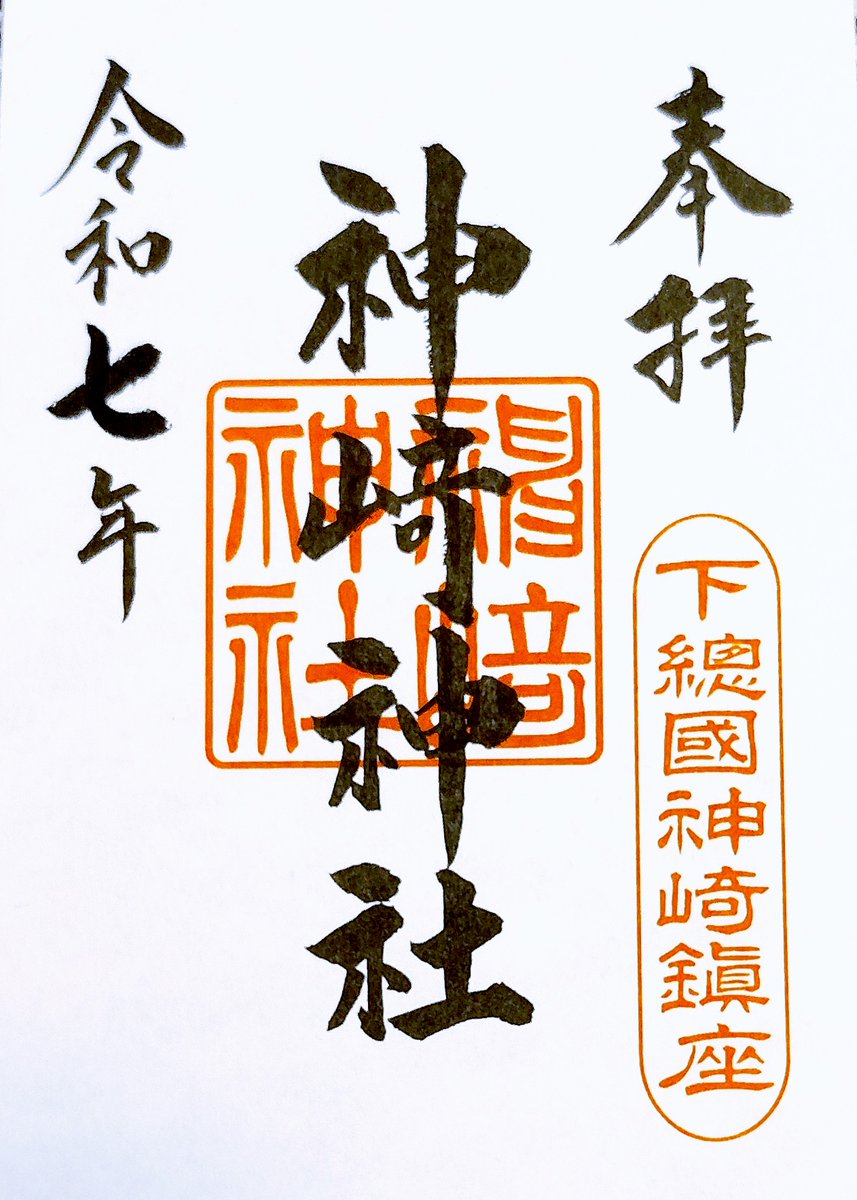 奉拝
下總國神崎鎮座
神崎神社
神崎神社
令和七年